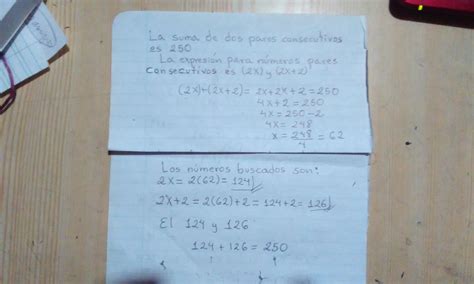 La suma de dos pares consecutivos
es 250
La expresión para números pares
consecutivos es (2x) y (2x+2)
(2x)+(2x+2)= 2x+2x+2=250
4x+2=250
4x=250-2
4x=248
x=248/4=62
Los números buscados son:
2x=2(62)=124
2x+2=2(62)+2=124+2=126
El 124 y 126
124+126=250